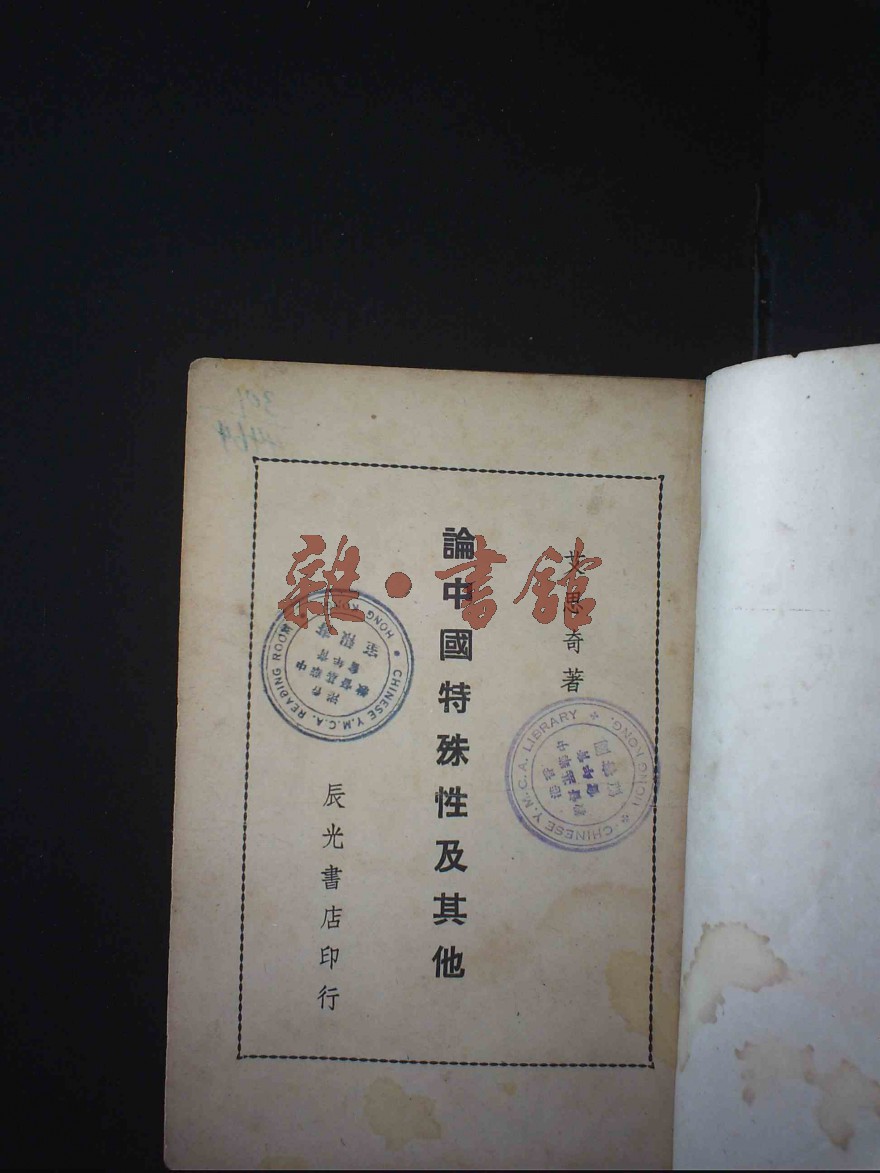 艾思奇著
論中國特殊性及其他
辰光書店印行
雜·書館
CHINESE Y.M.C.A. LIBRARY
HONG KONG.
CHINESE Y.M.C.A. READING ROOM
HONG KONG